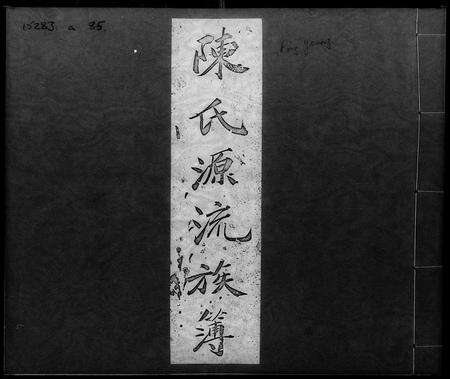 15283 a 85
陳氏源流族簿